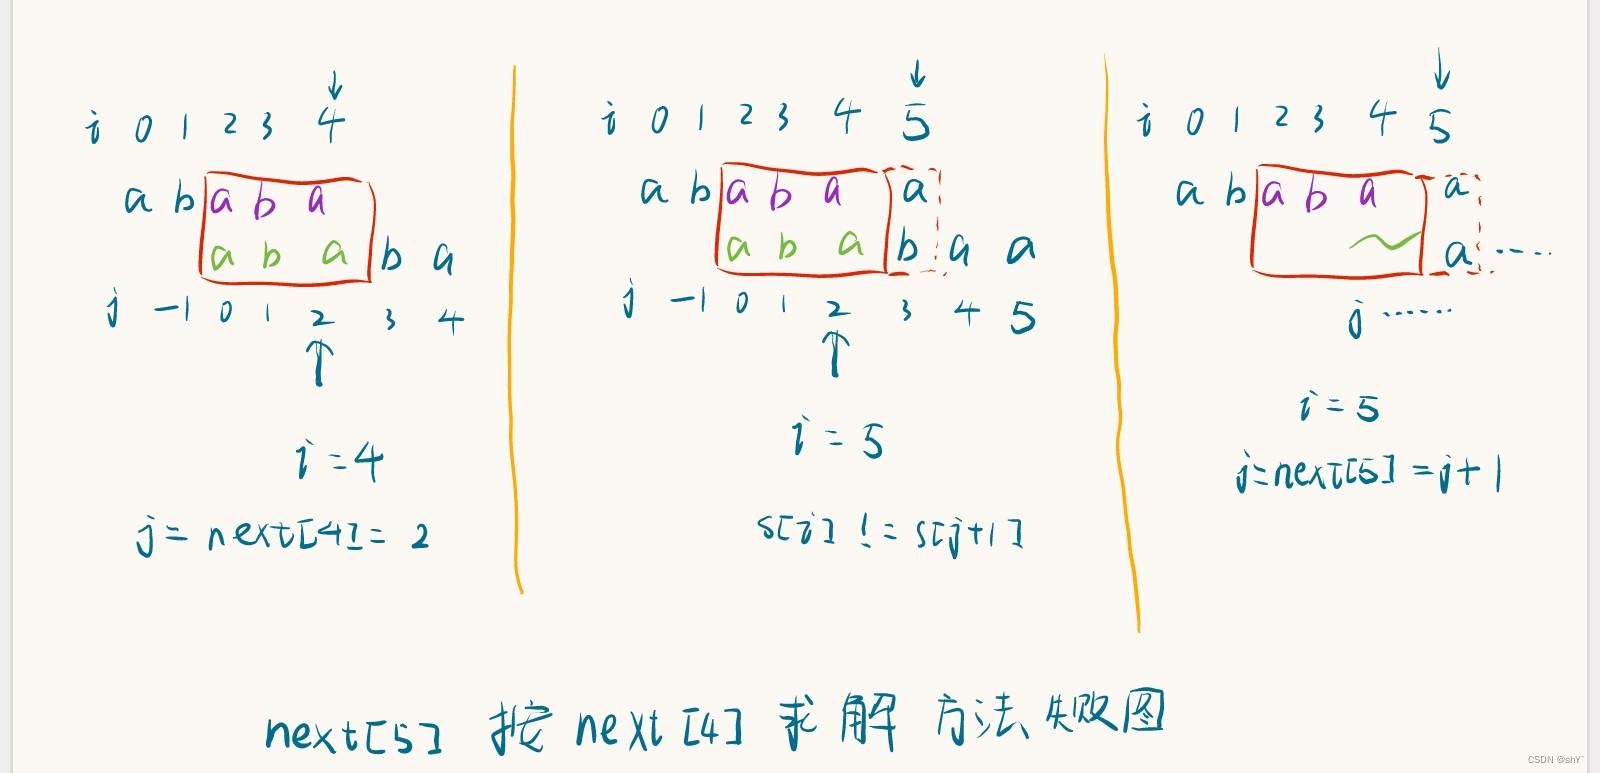 i 0 1 2 3 4
a b a b a
a b a b a
j -1 0 1 2 3 4
i = 4
j = next[4] = 2
i 0 1 2 3 4 5
a b a b a a
a b a b a a
j -1 0 1 2 3 4 5
i = 5
s[i] != s[j+1]
i 0 1 2 3 4 5
a b a b a a
a ....
j ......
i = 5
j = next[5] = j + 1
next[5]按 next[4] 求解 方法失败图
CSDN @shY`